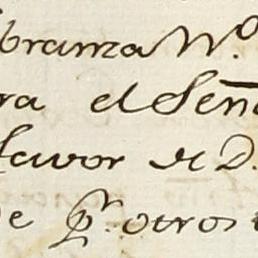 branza Nº
ra el Señ
favor de D.
de pr. otros